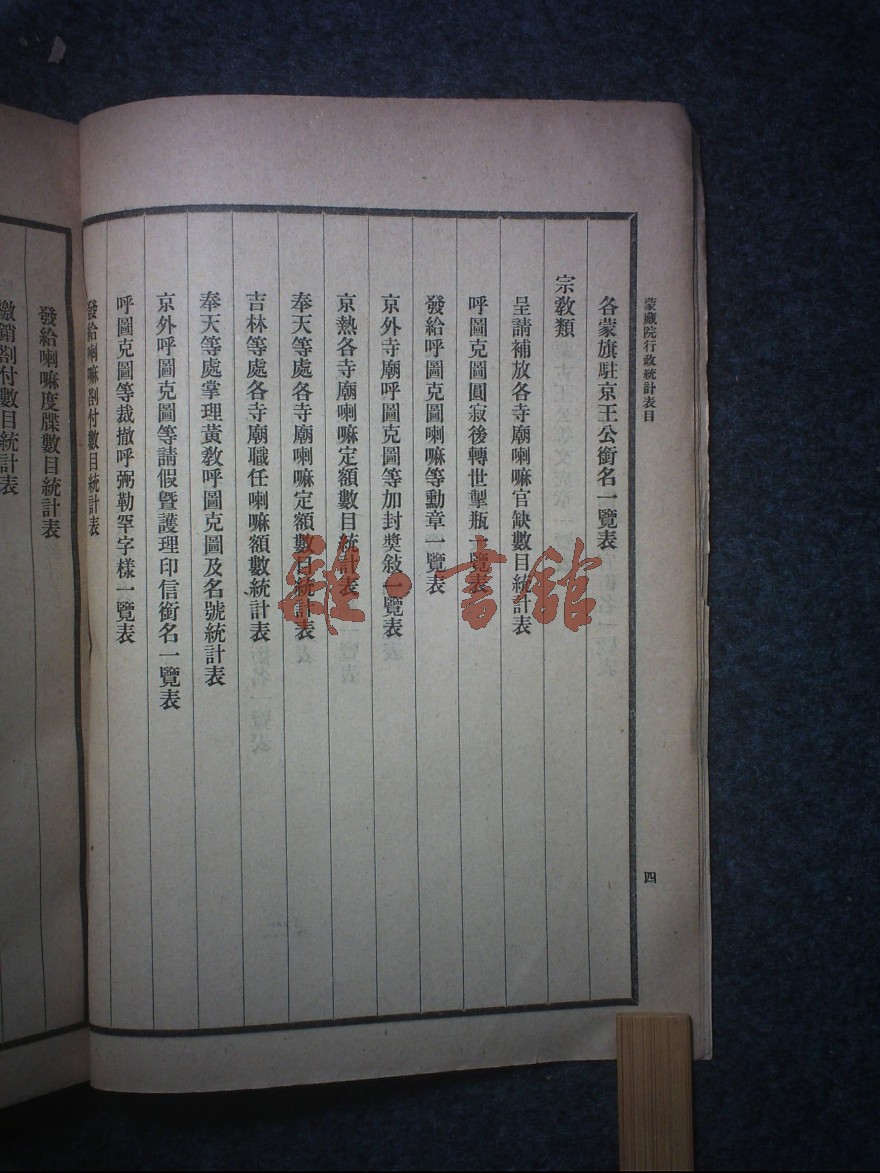 蒙藏院行政統計表目
四
各蒙旗駐京王公銜名一覽表
宗教類
呈請補放各寺廟喇嘛官缺數目統計表
呼圖克圖圓寂後轉世掣瓶一覽表
發給呼圖克圖喇嘛等勳章一覽表
京外寺廟呼圖克圖等加封獎敍一覽表
京熱各寺廟喇嘛定額數目統計表
奉天等處各寺廟喇嘛定額數目統計表
吉林等處各寺廟職任喇嘛額數統計表
奉天等處掌理黃教呼圖克圖及名號統計表
京外呼圖克圖等請假暨護理印信銜名一覽表
呼圖克圖等裁撤呼弼勒罕字樣一覽表
發給喇嘛劄付數目統計表
發給喇嘛度牒數目統計表
繳銷劄付數目統計表
雜·書館